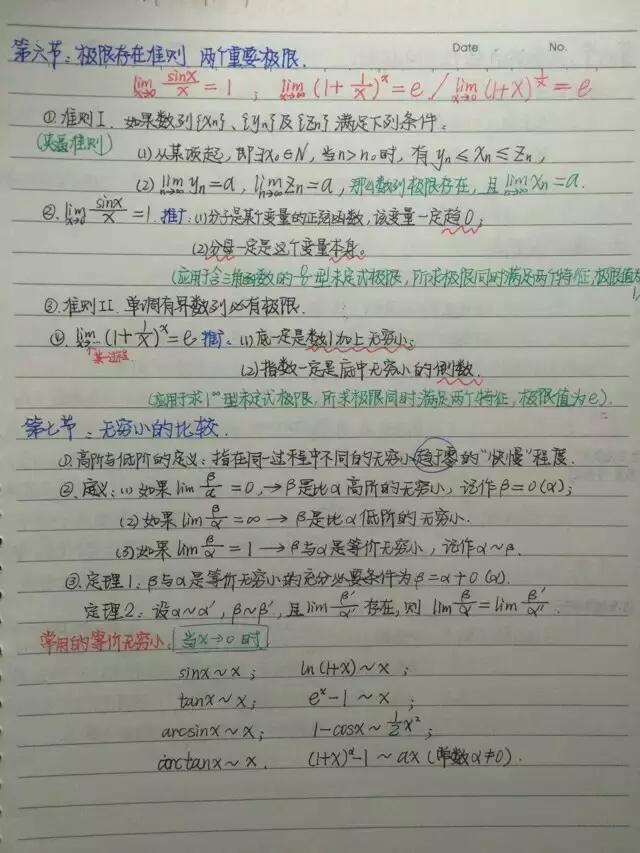 Date No.
第六节：极限存在准则 两个重要极限.
lim x→0 sinx/x = 1 ; lim x→∞ (1+1/x)^x = e / lim x→0 (1+x)^(1/x) = e
①准则I. 如果数列{Xn}、{yn}及{Zn}满足下列条件：
(夹逼准则) (1)从某项起，即∃x₀∈N，当n>n₀时，有 yn≤xn≤zn，
(2) lim n→∞ yn=a，lim n→∞ zn=a，那么数列极限存在，且 lim n→∞ xn=a.
②. lim x→0 sinx/x =1. 推广：(1)分子是某个变量的正弦函数，该变量一定趋0；
(2)分母一定是这个变量本身。
(应用于含三角函数的 0/0 型未定式极限，所求极限同时满足两个特征，极限值为
③.准则II. 单调有界数列必有极限.
④. lim x→∞ (1+1/x)^x = e. 推广：(1)底一定是数1加上无穷小；
某一过程
(2)指数一定是底中无穷小的倒数.
(应用于求1^∞型未定式极限，所求极限同时满足两个特征，极限值为e).
第七节：无穷小的比较.
①.高阶与低阶的定义：指在同一过程中不同的无穷小趋于零的“快慢”程度.
②.定义：(1)如果 lim β/α =0，→β是比α高阶的无穷小，记作β=0(α)；
(2)如果 lim β/α =∞ → β是比α低阶的无穷小.
(3)如果 lim β/α = 1 → β与α是等价无穷小，记作α~β.
③.定理1：β与α是等价无穷小的充分必要条件为β=α+0(α).
定理2：设α~α′，β~β′，且lim β′/α′ 存在，则 lim β/α = lim β′/α′.
常用的等价无穷小. 当x→0时
sinx~x； ln(1+x)~x；
tanx~x； e^x-1~x；
arcsinx~x； 1-cosx~1/2x²；
arctanx~x. (1+x)^α-1~αx (常数α≠0).